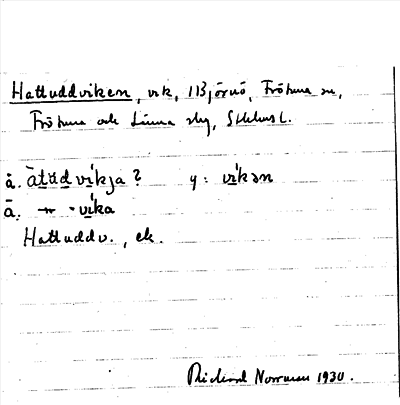 Hattuddviken, vik, i Björnö, Frötuna sn,
Frötuna och Länna slg, Sthlms l.
å. ātŭdvikja? y: vikən
ā. -"- -vika
Hattuddv., ek.
Rickard Norrman 1930.